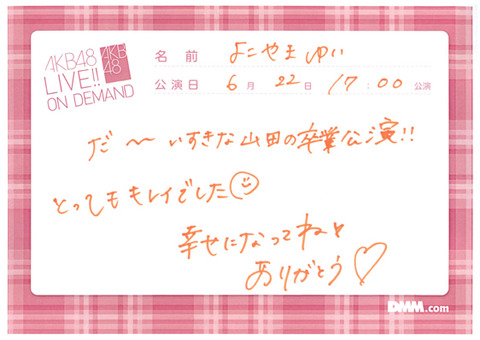 AKB48
LIVE!!
ON DEMAND
AKB
48
名 前 よこやま ゆい
公演日 6 月 22 日 17:00 公演
だ〜いすきな山田の卒業公演!!
とってもキレイでした
幸せになってね
ありがとう♡
DMM.com